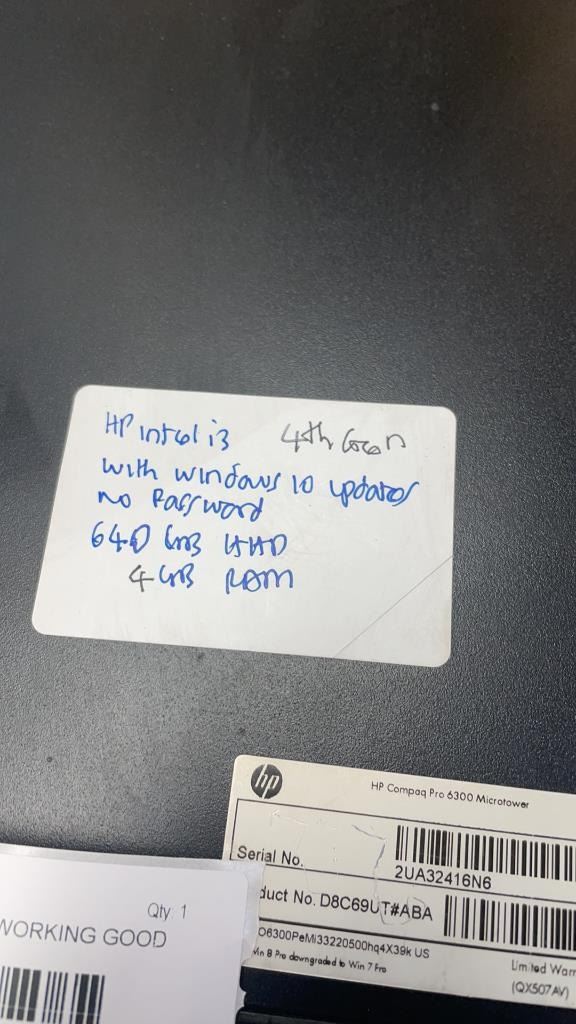 HP intel i3 4th Gen
with windows 10 updates
no Password
640 GB HHD
4 GB RAM
hp
HP Compaq Pro 6300 Microtower
Serial No.
2UA32416N6
duct No. D8C69UT#ABA
O6300PeMi33220500hq4X39k US
Win 8 Pro downgraded to Win 7 Pro
Limited Warr
(QX507AV)
Qty: 1
WORKING GOOD